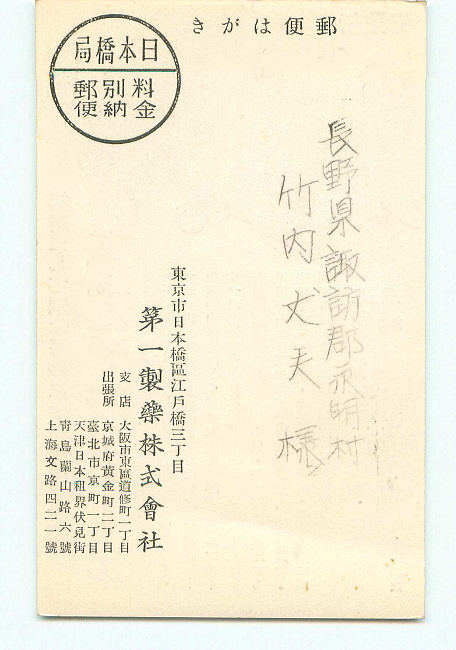 郵便はがき
日本橋局
料金別納郵便
長野県諏訪郡永明村
竹内丈夫様
東京市日本橋區江戸橋三丁目
第一製藥株式會社
支店 大阪市東區道修町一丁目
出張所 京城府黃金町二丁目
臺北市京町一丁目
天津日本租界伏見街
靑島關山路六號
上海文路四二一號